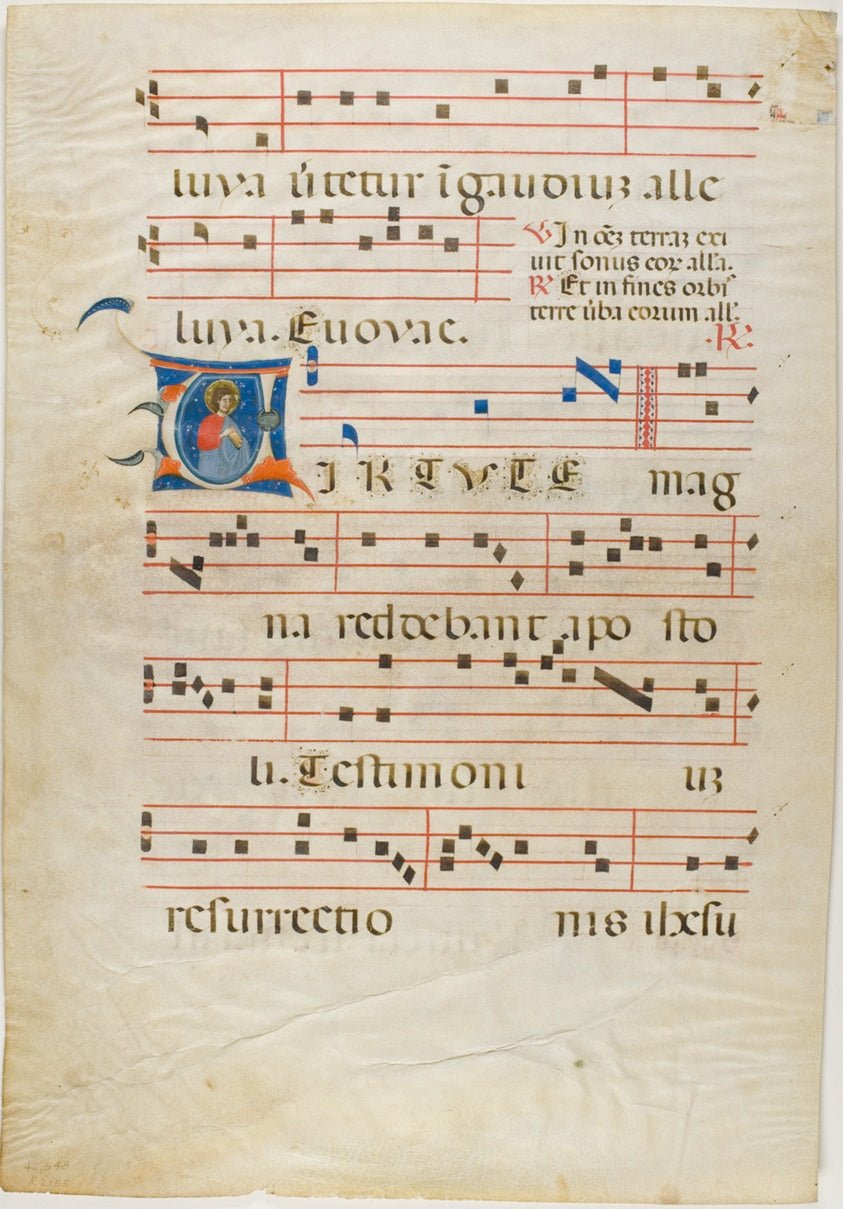 luya ũtetur ĩgaudiuʒ alle
luya. Euouae.
℣ In oẽʒ terraʒ exi
uit sonus eoꝝ all'a.
℟ Et in fines orbis
terre ũba eorum all'.
.℟.
VIRTUTE mag
na reddebant aposto
li. Testimoniuʒ
resurrectionis ihesu
42.548